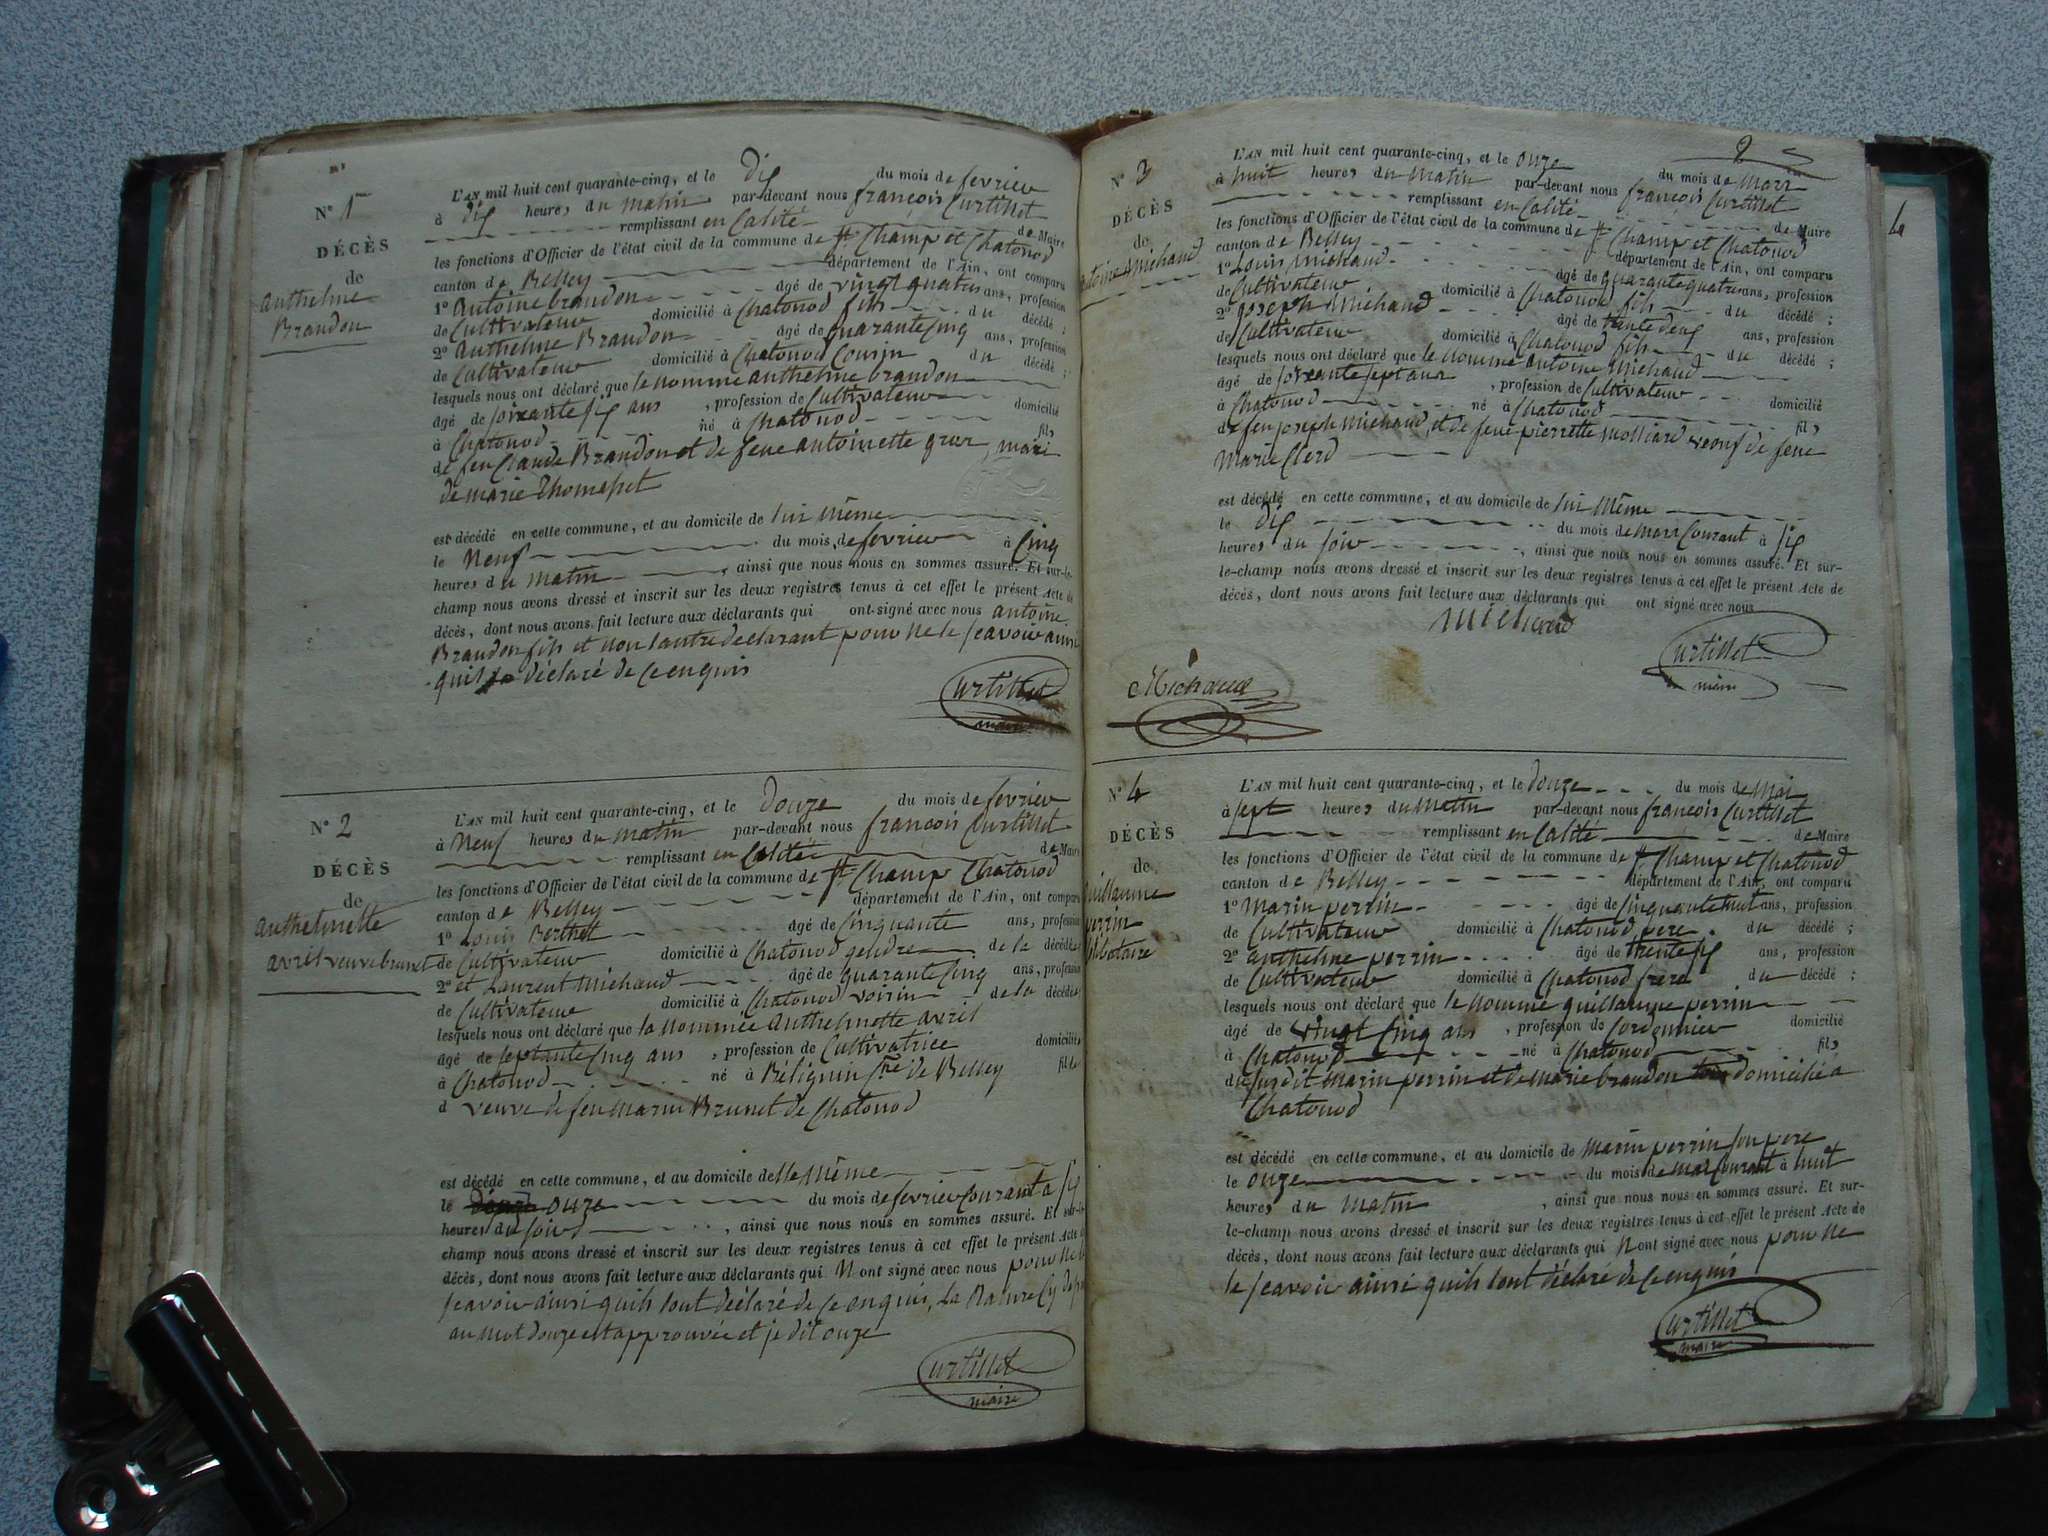 N° 1
DÉCÈS
de
anthelme
Brandon
L'AN mil huit cent quarante-cinq, et le dix du mois de fevrier
à dix heures du matin par-devant nous françois Curtillet
remplissant en Calité de Maire
les fonctions d'Officier de l'état civil de la commune de St Champ et Chatonod
canton de Belley département de l'Ain, ont comparu
1° Antoine brandon agé de vingt quatre ans, profession
de Cultivateur domicilié à Chatonod fils du décédé ;
2° Anthelme Brandon agé de quarante Cinq ans, profession
de Cultivateur domicilié à Chatonod Cousin du décédé ;
lesquels nous ont déclaré que le nommé anthelme brandon
agé de soixante six ans , profession de Cultivateur domicilié
à Chatonod né à Chatonod fils
de feu Claude Brandon et de feue antoinette mari
de marie Thomasset
est décédé en cette commune, et au domicile de lui même
le Neuf du mois de fevrier à Cinq
heures du matin , ainsi que nous nous en sommes assuré. Et sur-le-
champ nous avons dressé et inscrit sur les deux registres tenus à cet effet le présent Acte de
décès, dont nous avons fait lecture aux déclarants qui ont signé avec nous antoine
Brandon fils et non lautre declarant pour ne le scavoir ainsi
quil déclaré de Ce enquis
Curtillet
maire
N° 2
DÉCÈS
de
anthelmette
avril veuve brunet
L'AN mil huit cent quarante-cinq, et le douze du mois de fevrier
à Neuf heures du matin par-devant nous françois Curtillet
remplissant en Calité de Maire
les fonctions d'Officier de l'état civil de la commune de St Champ Chatonod
canton de Belley département de l'Ain, ont comparu
1° Louis Berthet agé de Cinquante ans, profession
de Cultivateur domicilié à Chatonod gendre de la décédée
2° et Laurent Michaud agé de quarante Cinq ans, profession
de Cultivateur domicilié à Chatonod voisin de la décédée
lesquels nous ont déclaré que la nommée Anthelmette avril
agé de septante Cinq ans , profession de Cultivatrice domiciliée
à Chatonod né à Bélignin Cne de Belley fille
d veuve de feu marin Brunet de Chatonod
est décédé en cette commune, et au domicile delle même
le douze onze du mois de fevrier Courant a six
heures du soir , ainsi que nous nous en sommes assuré. Et sur-le-
champ nous avons dressé et inscrit sur les deux registres tenus à cet effet le présent Acte de
décès, dont nous avons fait lecture aux déclarants qui N ont signé avec nous pour ne le
scavoir ainsi quils lont déclaré de Ce enquis, La Rature Cy
au mot douze est approuvée et je dit onze
Curtillet
maire
2
N° 3
DÉCÈS
de
antoine Michaud
L'AN mil huit cent quarante-cinq, et le onze du mois de mars
à huit heures du matin par-devant nous françois Curtillet
remplissant en Calité de Maire
les fonctions d'Officier de l'état civil de la commune de St Champ et Chatonod
canton de Belley département de l'Ain, ont comparu
1° Louis Michaud agé de quarante quatre ans, profession
de Cultivateur domicilié à Chatonod fils du décédé ;
2° Joseph Michaud agé de trente deux ans, profession
de Cultivateur domicilié à Chatonod fils du décédé ;
lesquels nous ont déclaré que le nommé antoine Michaud
agé de soixante sept ans , profession de Cultivateur domicilié
à Chatonod né à Chatonod fils
de feu joseph Michaud, et de feue pierrette Molliard veuf de feue
Marie Clerd
est décédé en cette commune, et au domicile de lui Même
le dix du mois de mars Courant à six
heures du soir , ainsi que nous nous en sommes assuré. Et sur-
le-champ nous avons dressé et inscrit sur les deux registres tenus à cet effet le présent Acte de
décès, dont nous avons fait lecture aux déclarants qui ont signé avec nous
Michaud
Curtillet
maire
Michaud
4
N° 4
DÉCÈS
de
guillaume
perrin
Célibataire
L'AN mil huit cent quarante-cinq, et le douze du mois de Mai
à sept heures du Matin par-devant nous françois Curtillet
remplissant en Calité de Maire
les fonctions d'Officier de l'état civil de la commune de St Champ et Chatonod
canton de Belley département de l'Ain, ont comparu
1° Marin perrin agé de Cinquante huit ans, profession
de Cultivateur domicilié à Chatonod pere du décédé ;
2° anthelme perrin agé de trente six ans, profession
de Cultivateur domicilié à Chatonod frere du décédé ;
lesquels nous ont déclaré que le nommé guillaume perrin
agé de vingt Cinq ans , profession de Cordonnier domicilié
à Chatonod né à Chatonod fils
du susdit Marin perrin et de Marie brandon domicilié a
Chatonod
est décédé en cette commune, et au domicile de Marin perrin son pere
le onze du mois de mai Courant à huit
heures du Matin , ainsi que nous nous en sommes assuré. Et sur-
le-champ nous avons dressé et inscrit sur les deux registres tenus à cet effet le présent Acte de
décès, dont nous avons fait lecture aux déclarants qui N ont signé avec nous pour ne
le scavoir ainsi quils lont déclaré de Ce enquis
Curtillet
maire